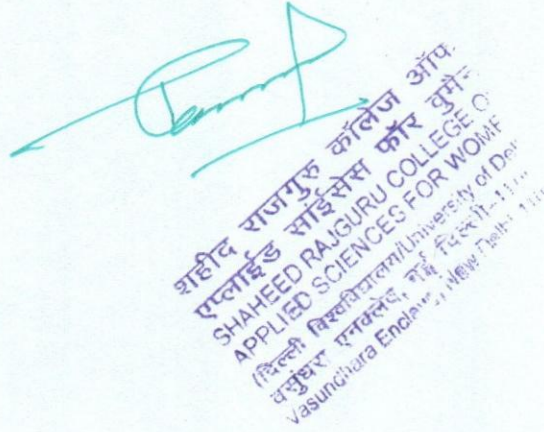 शहीद राजगुरु कॉलेज ऑफ
एप्लाईड साईंसेस फॉर वुमैन
SHAHEED RAJGURU COLLEGE O
APPLIED SCIENCES FOR WOME
(दिल्ली विश्वविद्यालय/University of De
वसुंधरा एनक्लेव, नई दिल्ली-11
Vasundhara Enclave, New Delhi